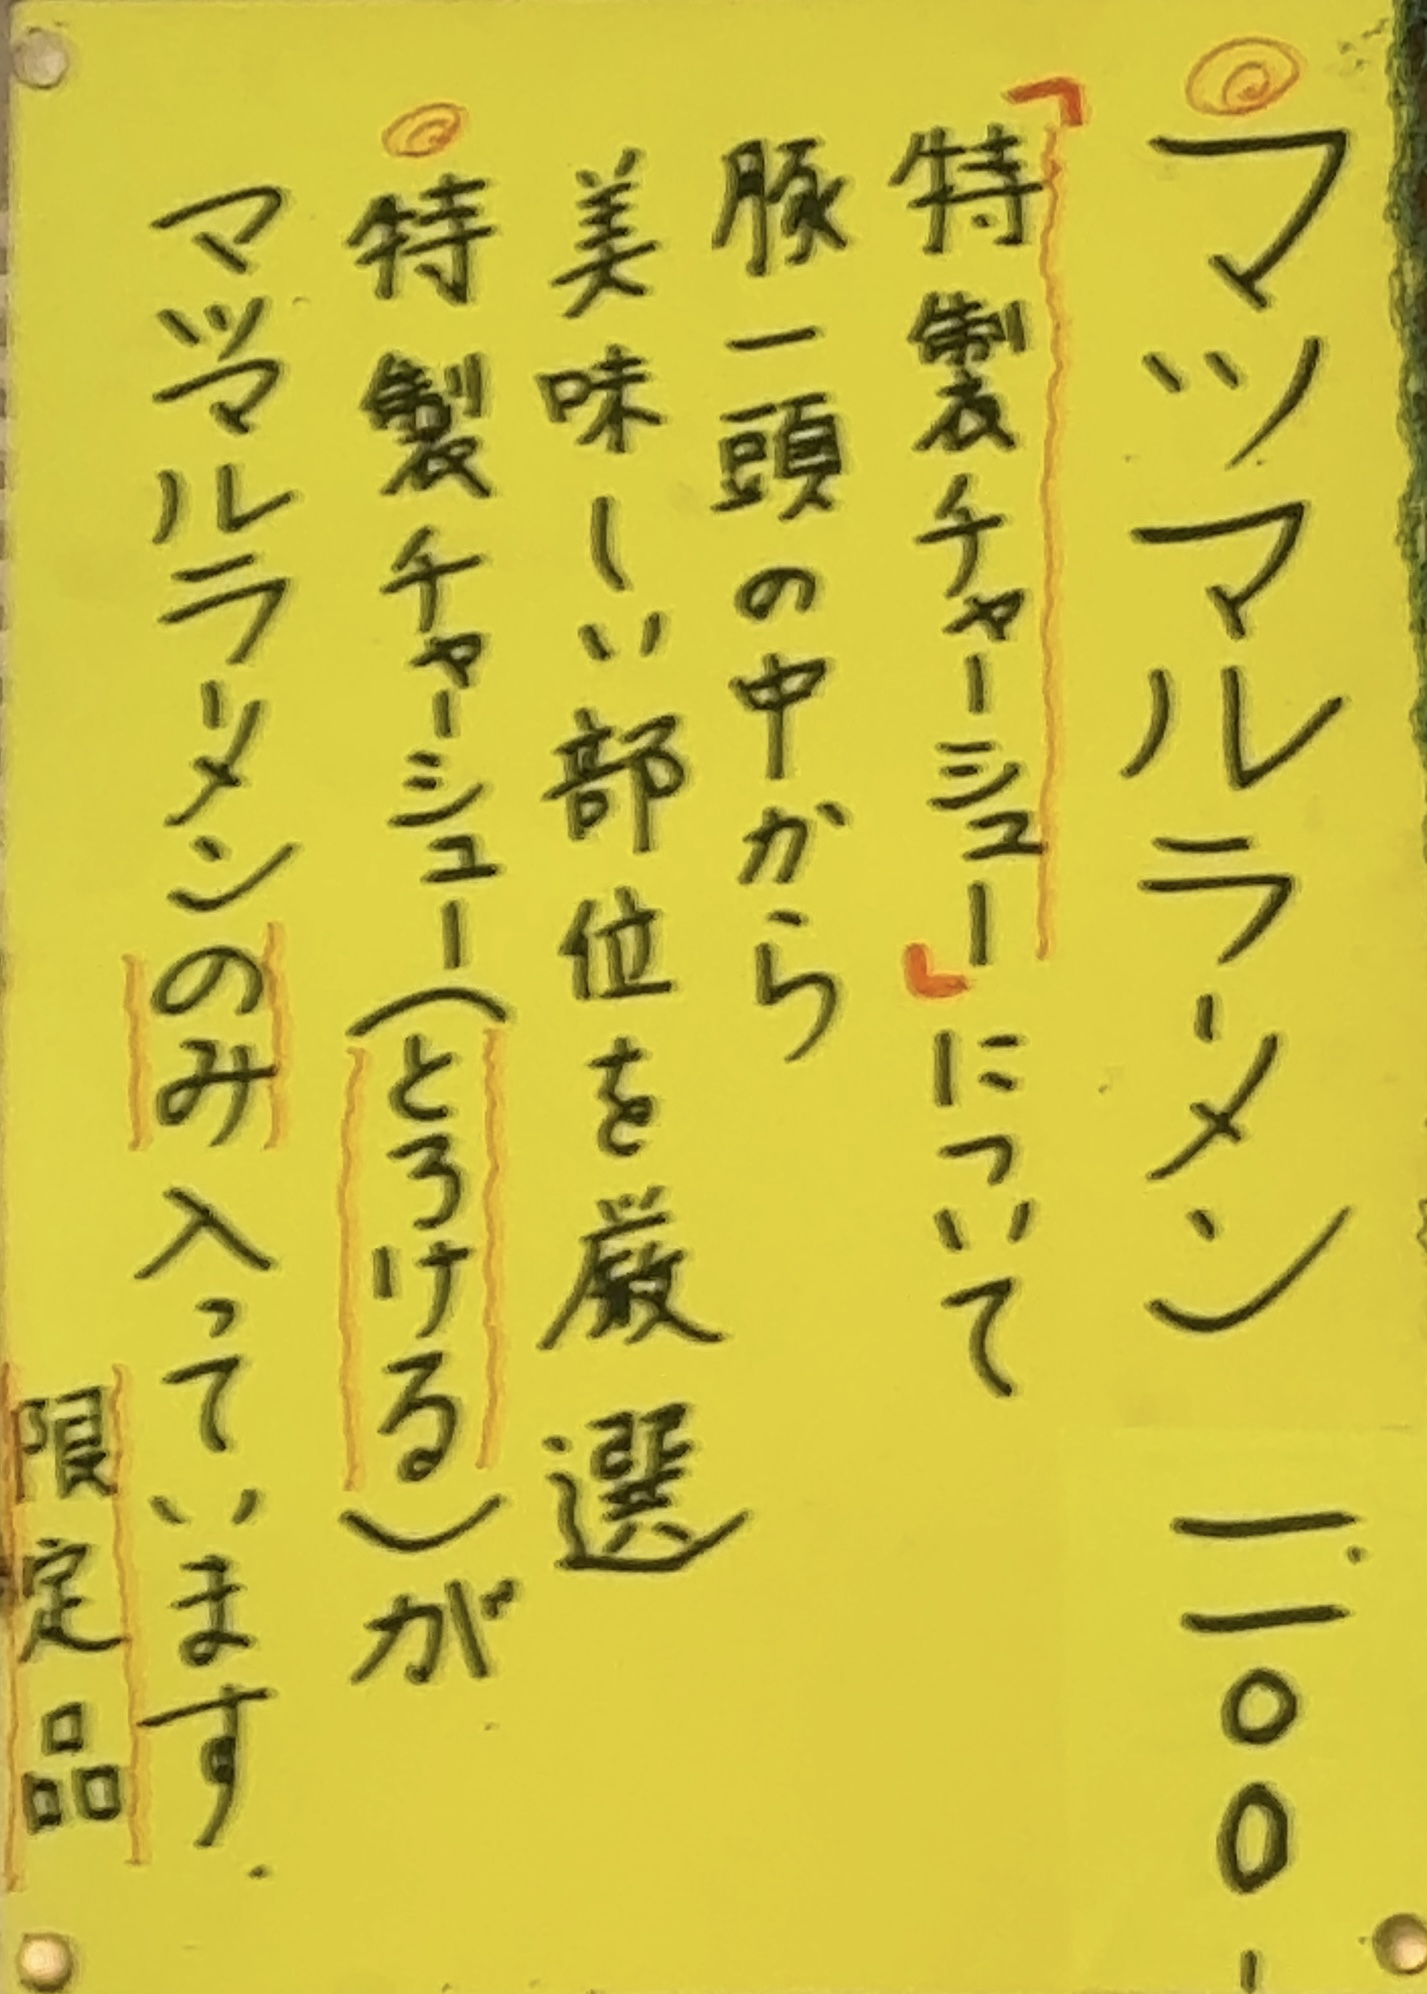 マッマルラーメン 一、一〇〇-
「特製チャーシュー」について
豚一頭の中から
美味しい部位を厳選
特製チャーシュー(とろける)が
マッマルラーメンのみ入っています.
限定品